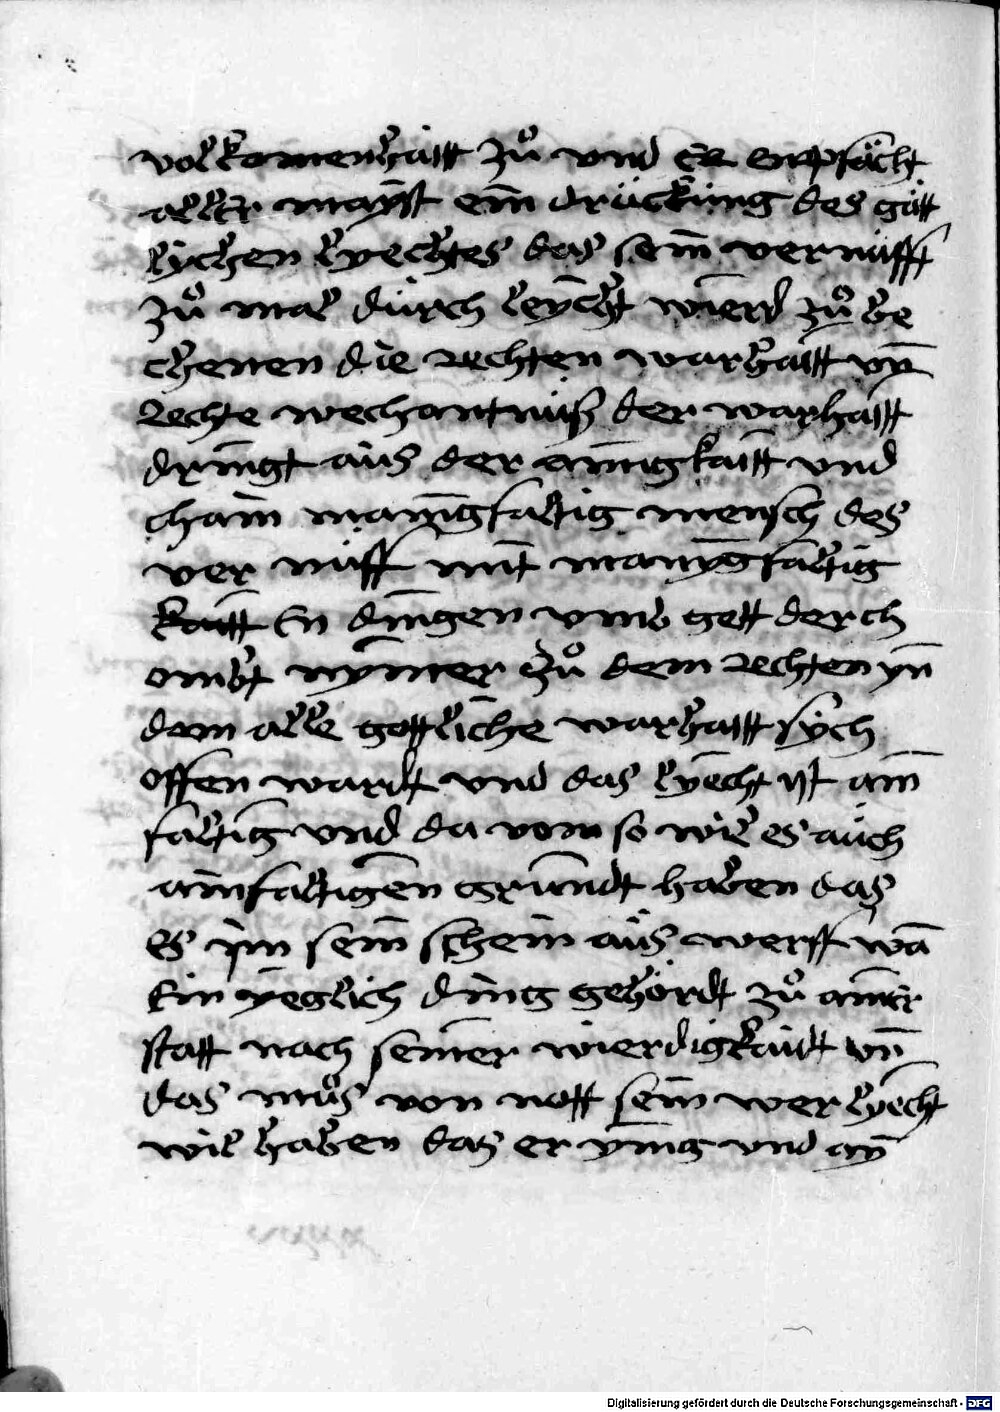 volkomenhaitt zů vnd Er enpfácht
aller mayst ein drückung des gött
lychen lyechtes das sein vernüfft
zů mal dürch leycht wierd zů be
chenen die rechten warhaitt vn̄
rechte wechantnüß der warhaitt
dringt aůs der ainigkaitt vnd
chain manigfaltig mensch des
ver nüff mit manygfaltig
kaitt En dingen vmb gett derch
ombt nymer zů dem rechten yn̄
dem alle gottliche warhaitt sych
offen wardt vnd das lyecht yst ain
faltig vnd da vom so wil es aüch
ainfaltigen grundt haben das
es im sein schein aůs werff wā
Ein yeglich ding gehördt zů ainer
statt nach seiner wierdigkaidt vn̄
das můs von nott sein wer lyecht
wil haben das er ynig vnd ay
Digitalisierung gefördert durch die Deutsche Forschungsgemeinschaft - DFG